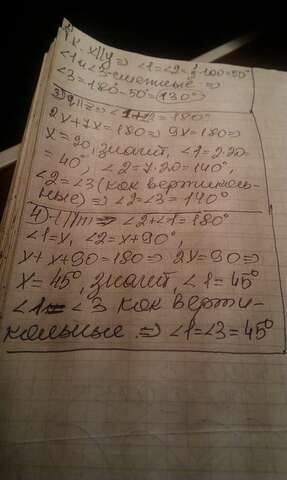 x||y ⇒ ∠1=∠2=½·100=50°
∠1 и ∠3-смежные ⇒
∠3=180-50°=130°
3) ⇒ ∠1+∠2=180°
2x+7x=180⇒9x=180⇒
x=20, значит, ∠1=2·20=
=40°, ∠2=7·20=140°,
∠2=∠3 (как вертикаль-
ные) ⇒ ∠2=∠3=140°
4) l||m⇒∠2+∠1=180°
∠1=x, ∠2=x+90°,
x+x+90=180⇒2x=90⇒
x=45°, значит, ∠1=45°
∠1=∠3 как верти-
кальные ⇒ ∠1=∠3=45°